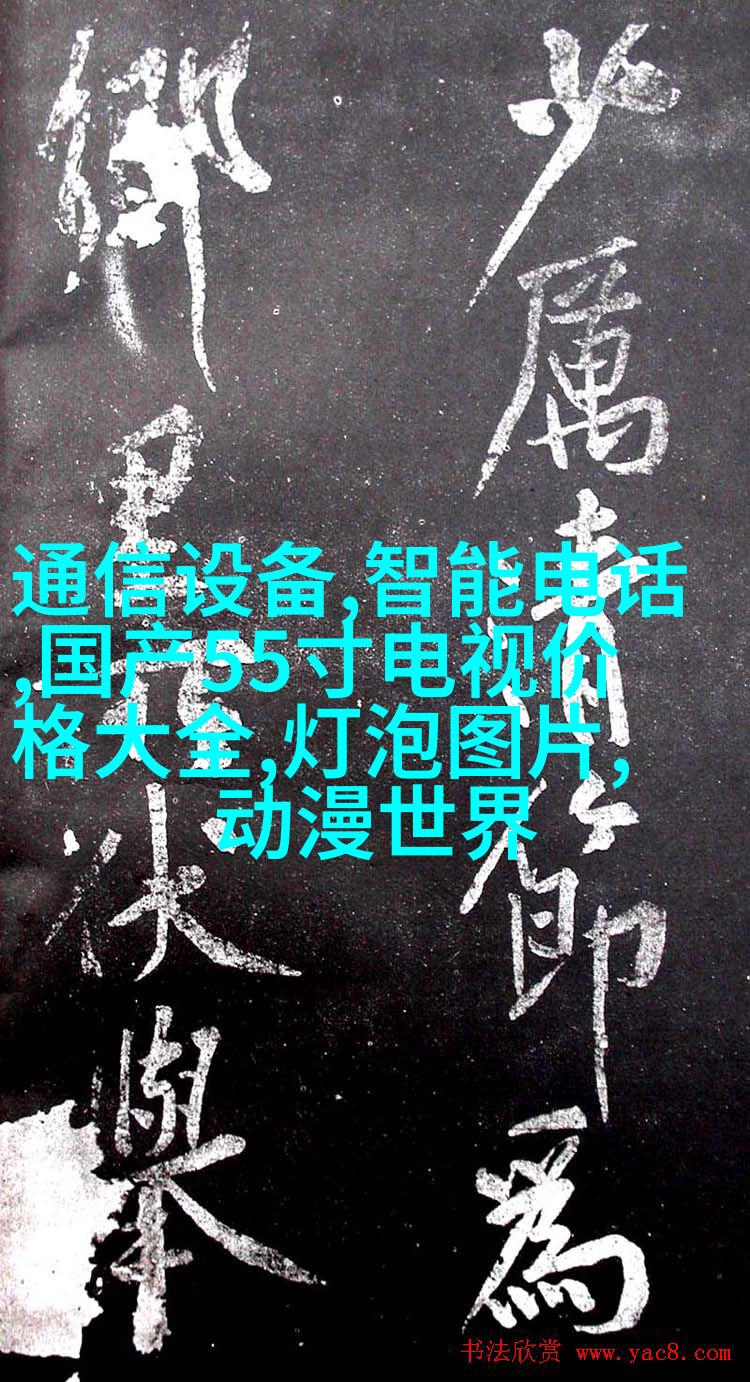 少厲清節為
鄉里伏舉
通信设备,智能电话
,国产55寸电视价
格大全,灯泡图片,
动漫世界
书法欣赏 www.yac8.com